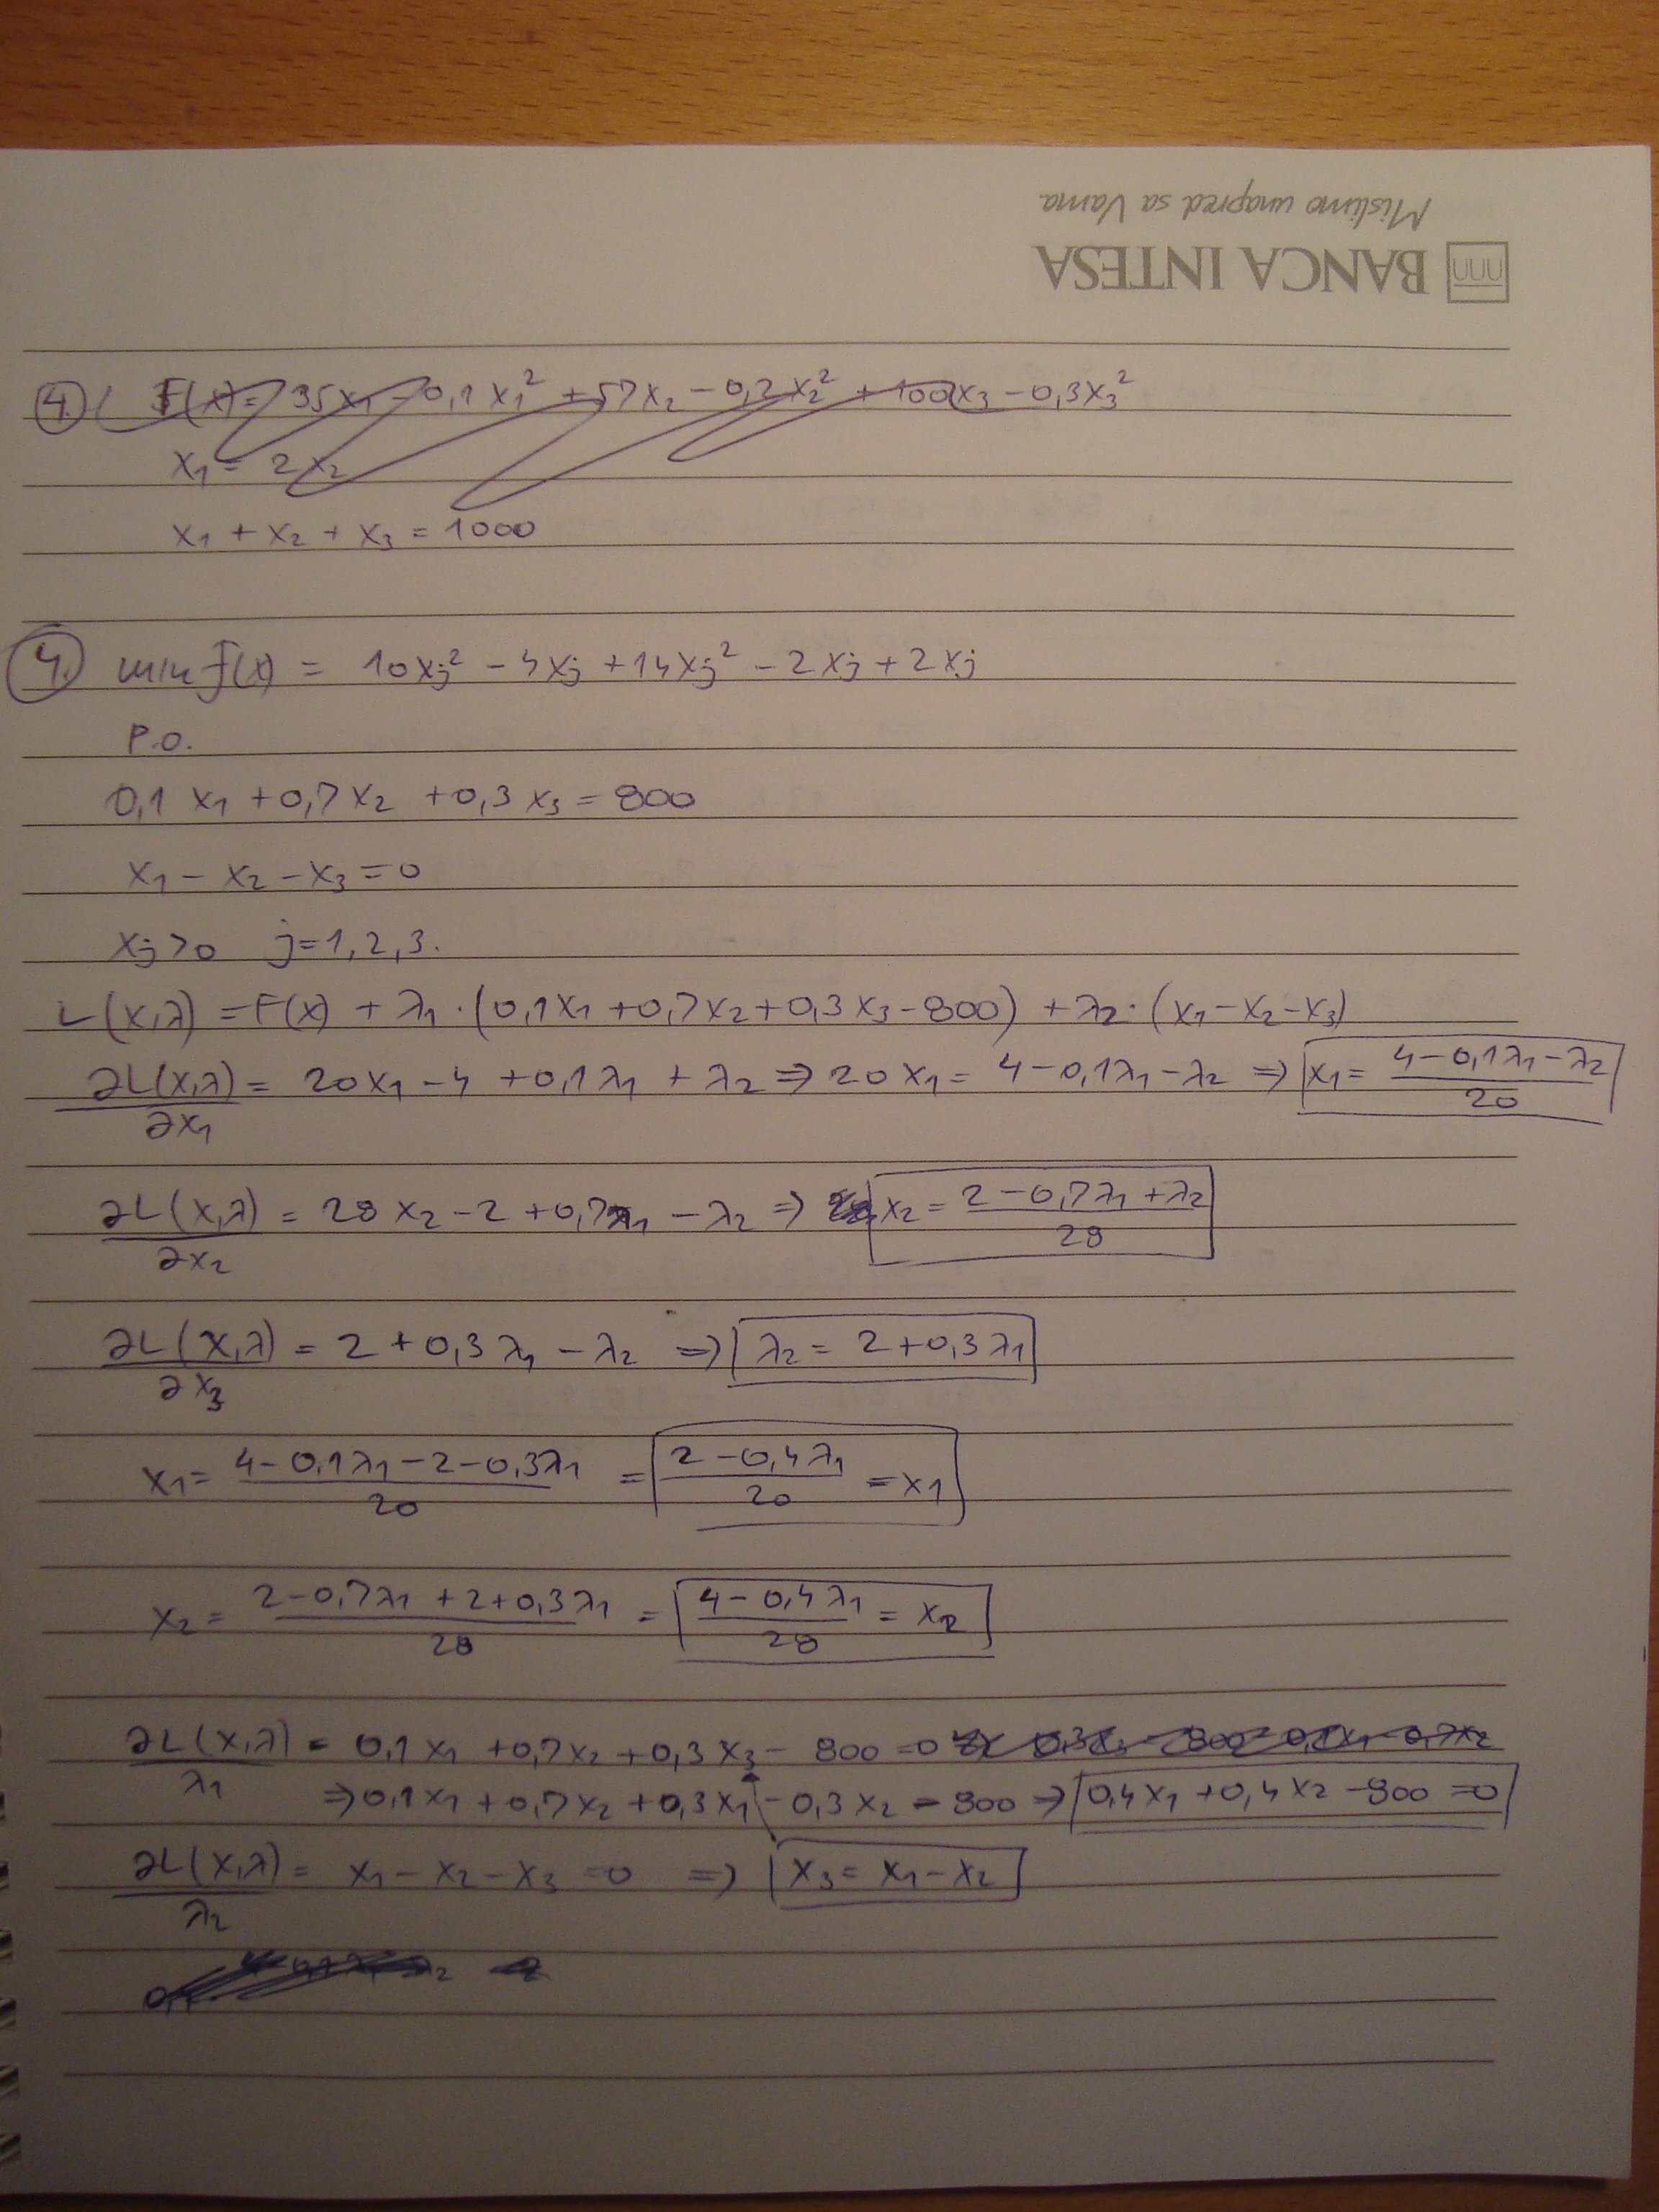 Mislimo unapred sa Vama
BANCA INTESA
4. F(x) = 35x₁ - 0,1x₁² + 57x₂ - 0,2x₂² + 100x₃ - 0,3x₃²
x₁ = 2x₂
x₁ + x₂ + x₃ = 1000
4. min f(x) = 10xj² - 4xj + 14xj² - 2xj + 2xj
P.O.
0,1 x₁ + 0,7x₂ + 0,3x₃ = 800
x₁ - x₂ - x₃ = 0
xj > 0 j = 1, 2, 3.
L(x,λ) = F(x) + λ₁ · (0,1x₁ + 0,7x₂ + 0,3x₃ - 800) + λ₂ · (x₁ - x₂ - x₃)
∂L(x,λ)/∂x₁ = 20x₁ - 4 + 0,1λ₁ + λ₂ ⇒ 20x₁ = 4 - 0,1λ₁ - λ₂ ⇒ x₁ = (4 - 0,1λ₁ - λ₂)/20
∂L(x,λ)/∂x₂ = 28x₂ - 2 + 0,7λ₁ - λ₂ ⇒ x₂ = (2 - 0,7λ₁ + λ₂)/28
∂L(x,λ)/∂x₃ = 2 + 0,3λ₁ - λ₂ ⇒ λ₂ = 2 + 0,3λ₁
x₁ = (4 - 0,1λ₁ - 2 - 0,3λ₁)/20 = (2 - 0,4λ₁)/20 = x₁
x₂ = (2 - 0,7λ₁ + 2 + 0,3λ₁)/28 = (4 - 0,4λ₁)/28 = x₂
∂L(x,λ)/λ₁ = 0,1x₁ + 0,7x₂ + 0,3x₃ - 800 = 0
⇒ 0,1x₁ + 0,7x₂ + 0,3x₁ - 0,3x₂ = 800 ⇒ 0,4x₁ + 0,4x₂ - 800 = 0
∂L(x,λ)/λ₂ = x₁ - x₂ - x₃ = 0 ⇒ x₃ = x₁ - x₂